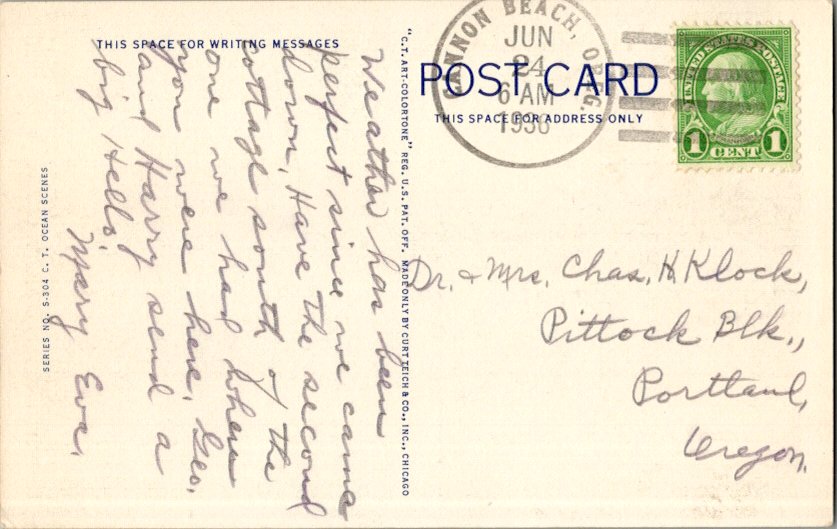 THIS SPACE FOR WRITING MESSAGES
Weather has been
perfect since we came
down, Have the second
cottage south of the
one we had when
you were here. Geo.
and Harry send a
big Hello!
Mary Eva.
SERIES NO. S-304 C. T. OCEAN SCENES
"C.T. ART-COLORTONE" REG. U.S. PAT. OFF. MADE ONLY BY CURT TEICH & CO., INC., CHICAGO
CANNON BEACH, OREG.
JUN
24
6 AM
1936
UNITED STATES POSTAGE
1 CENT 1
POST CARD
THIS SPACE FOR ADDRESS ONLY
Dr. & Mrs. Chas. H. Klock,
Pittock Blk.,
Portland,
Oregon.